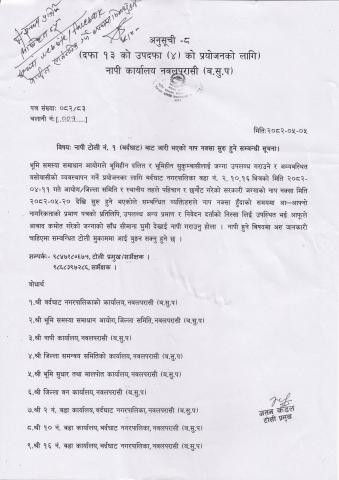 अनुसूची -८
(दफा १३ को उपदफा (४) को प्रयोजनको लागि)
नापी कार्यालय नवलपरासी (ब.सु.प)
पत्र संख्या: ०८२/८३
चलानी नं.:
मिति:२०८२-०५-०५
विषय: नापी टोली नं. १ (बर्दघाट) बाट जारी भएको नाप नक्सा सुरु हुने सम्बन्धी सूचना।
भूमि समस्या समाधान आयोगले भूमिहीन दलित र भूमिहीन सुकुम्बासीलाई जग्गा उपलब्ध गराउने र अव्यवस्थित
बसोवासीको व्यवस्थापन गर्ने प्रयोजनका लागि बर्दघाट नगरपालिका वडा नं. २,१०,१६ भित्रको मिति २०८२-
०४-११ गते आयोग/जिल्ला समिति र स्थानीय तहले पहिचान र छनौट गरेको सरकारी जग्गाको नाप नक्सा मिति
२०८२-०५-२० देखि सुरु हुने भएकोले सम्बन्धित व्यक्तिहरुले नाप नक्सा हुँदाको समयमा आ-आफ्नो
नागरिकताको प्रमाण पत्रको प्रतिलिपि, उपलब्ध अन्य प्रमाण र निवेदन दर्ताको निस्सा लिई उपस्थित भई आफुले
आबाद कमोत गरेको जग्गाको साँध सीमाना घुमी देखाई नापी गराउनु होला । नापी हुने विषयमा अरु जानकारी
चाहिएमा सम्बन्धित टोली मुकाममा आई बुझ्न सक्नु हुने छ ।
टोली प्रमुख/सर्भेक्षक ।
सर्भेक्षक ।
बोधार्थ
१.श्री बर्दघाट नगरपालिकाको कार्यालय,नवलपरासी (ब.सु.प)
२.श्री भूमि समस्या समाधान आयोग,जिल्ला समिति,नवलपरासी (ब.सु.प)
३.श्री नापी कार्यालय,नवलपरासी (ब.सु.प)
४.श्री जिल्ला समन्वय समितिको कार्यालय,नवलपरासी (ब.सु.प)
५.श्री भूमि सुधार तथा मालपोत कार्यालय,नवलपरासी (ब.सु.प)
६.श्री जिल्ला वन कार्यालय,नवलपरासी (ब.सु.प)
७.श्री २ नं. वडा कार्यालय,बर्दघाट नगरपालिका,नवलपरासी (ब.सु.प)
८.श्री १० नं. वडा कार्यालय,बर्दघाट नगरपालिका,नवलपरासी (ब.सु.प)
९.श्री १६ नं. वडा कार्यालय,बर्दघाट नगरपालिका,नवलपरासी (ब.सु.प)
टोली प्रमुख